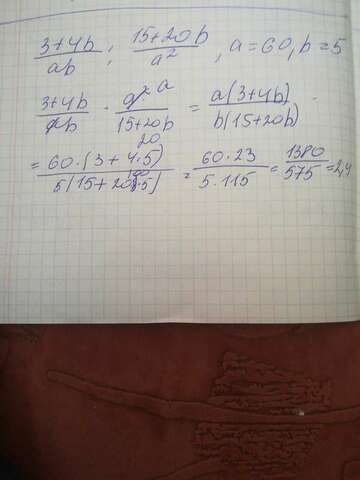 (3+4b)/(ab) : (15+20b)/(a²) , a=60, b=5
(3+4b)/(ab) · (a²)/(15+20b) a = a(3+4b)/b(15+20b)
20 100
= 60·(3+4·5)/5(15+20·5) = 60·23/5·115 = 1380/575 = 2,4